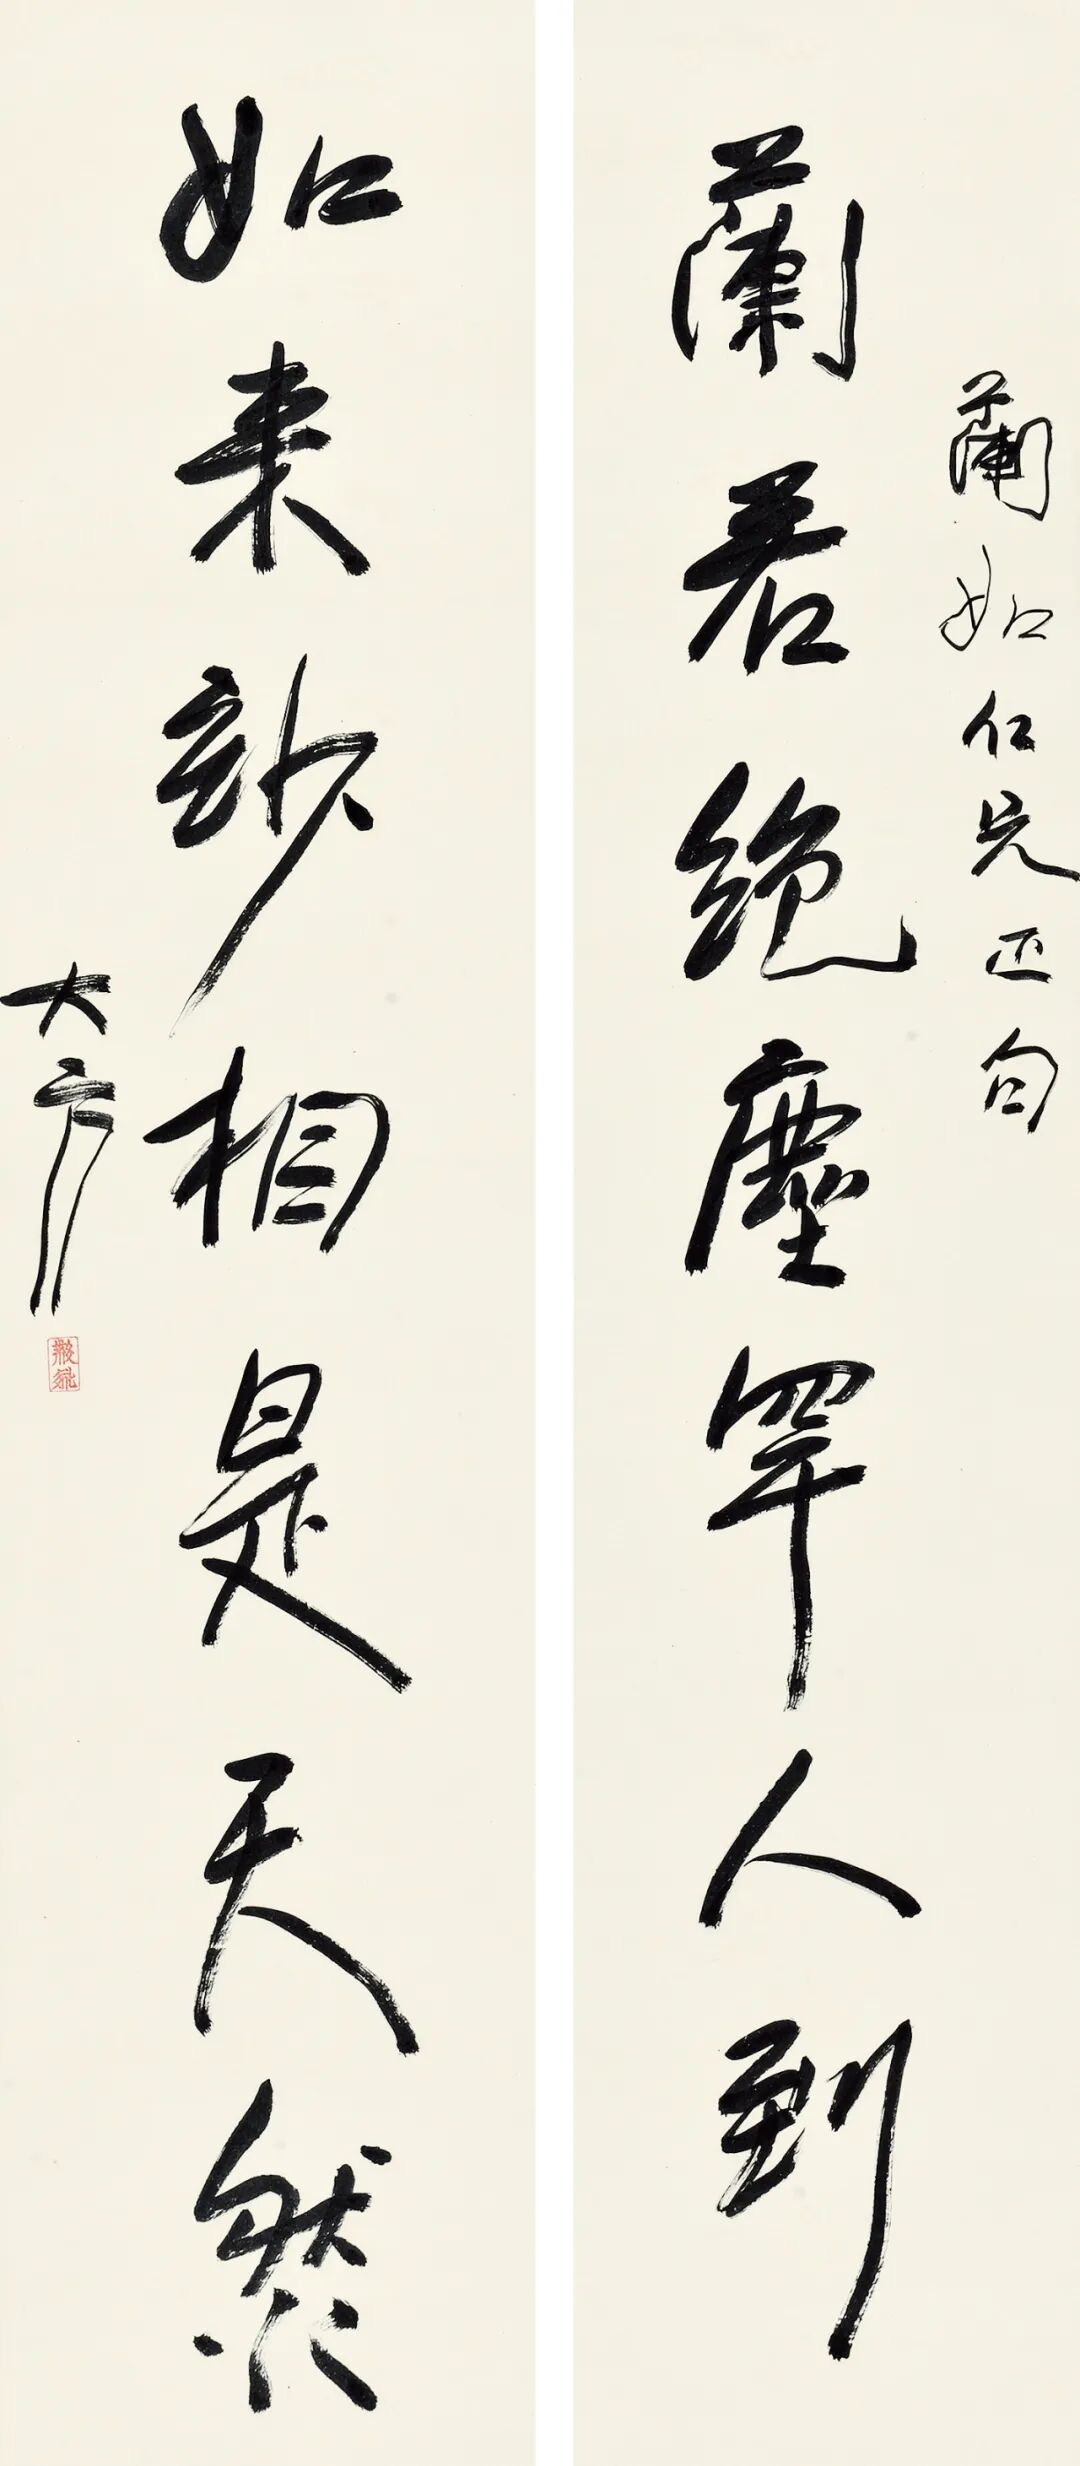 蘭如仁兄正句
蘭若絕塵罕人到
如來玅相是天然
大方